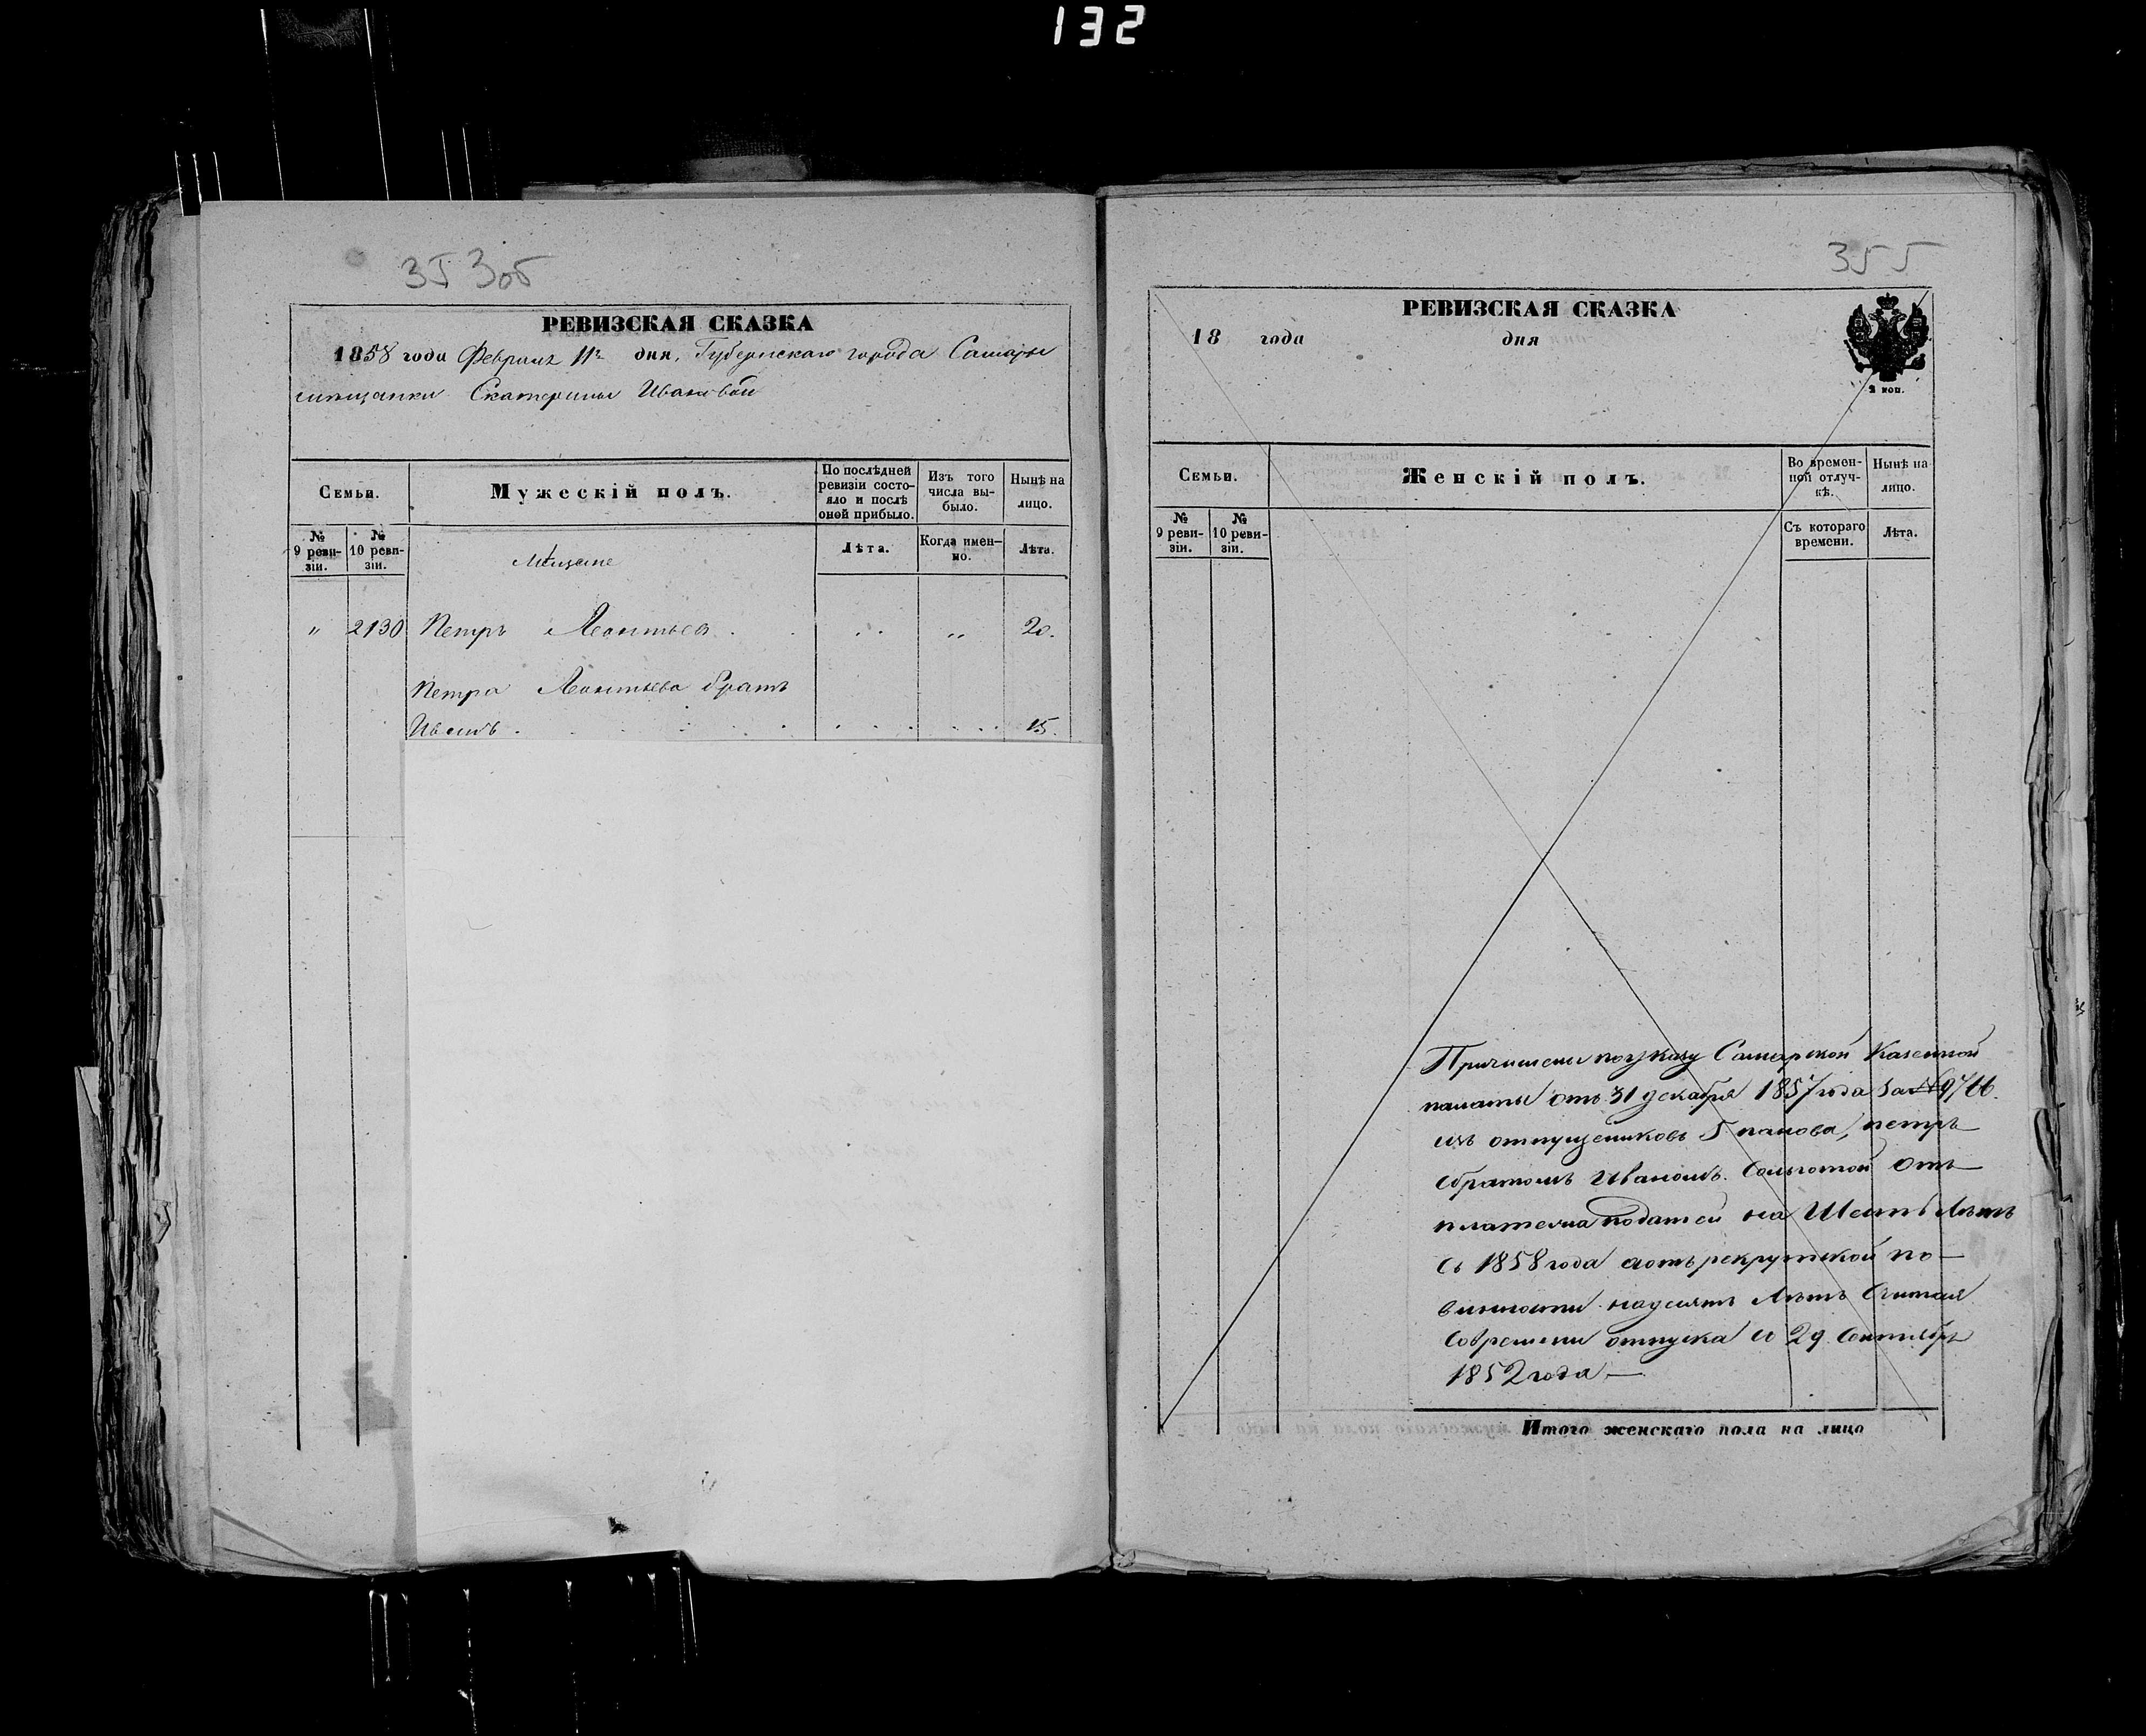 132
353об
РЕВИЗСКАЯ СКАЗКА
1858 года Февраля 11го дня, Губернскаго города Самары
мѣщанки Екатерины Ивановой
Семьи.
Мужескій полъ.
По послѣдней ревизіи состояло и послѣ оной прибыло.
Изъ того числа выбыло.
Нынѣ на лицо.
№ 9 ревизіи.
№ 10 ревизіи.
Мѣщане
Лѣта.
Когда именно.
Лѣта.
" 2130 Петръ Леонтьев . . . . „ 20.
Петра Леонтьева братъ
Иванъ . . . . . 15.
355
РЕВИЗСКАЯ СКАЗКА
18 года дня
2 коп.
Семьи.
Женскій полъ.
Во временной отлучкѣ.
Нынѣ на лицо.
№ 9 ревизіи.
№ 10 ревизіи.
Съ котораго времени.
Лѣта.
Причислены поуказу Самарской Казенной
палаты отъ 31 декабря 1857 года за №
изъ отпущениковъ Панова, петръ
сбратомъ Иваномъ. Сольготой отъ
платежа податей на Шесть Лѣтъ
съ 1858 года аотъ рекрутской по-
винности надесять Лѣтъ Считая
Современи отпуска со 29 Сентября
1852 года —
Итого женскаго пола на лицо